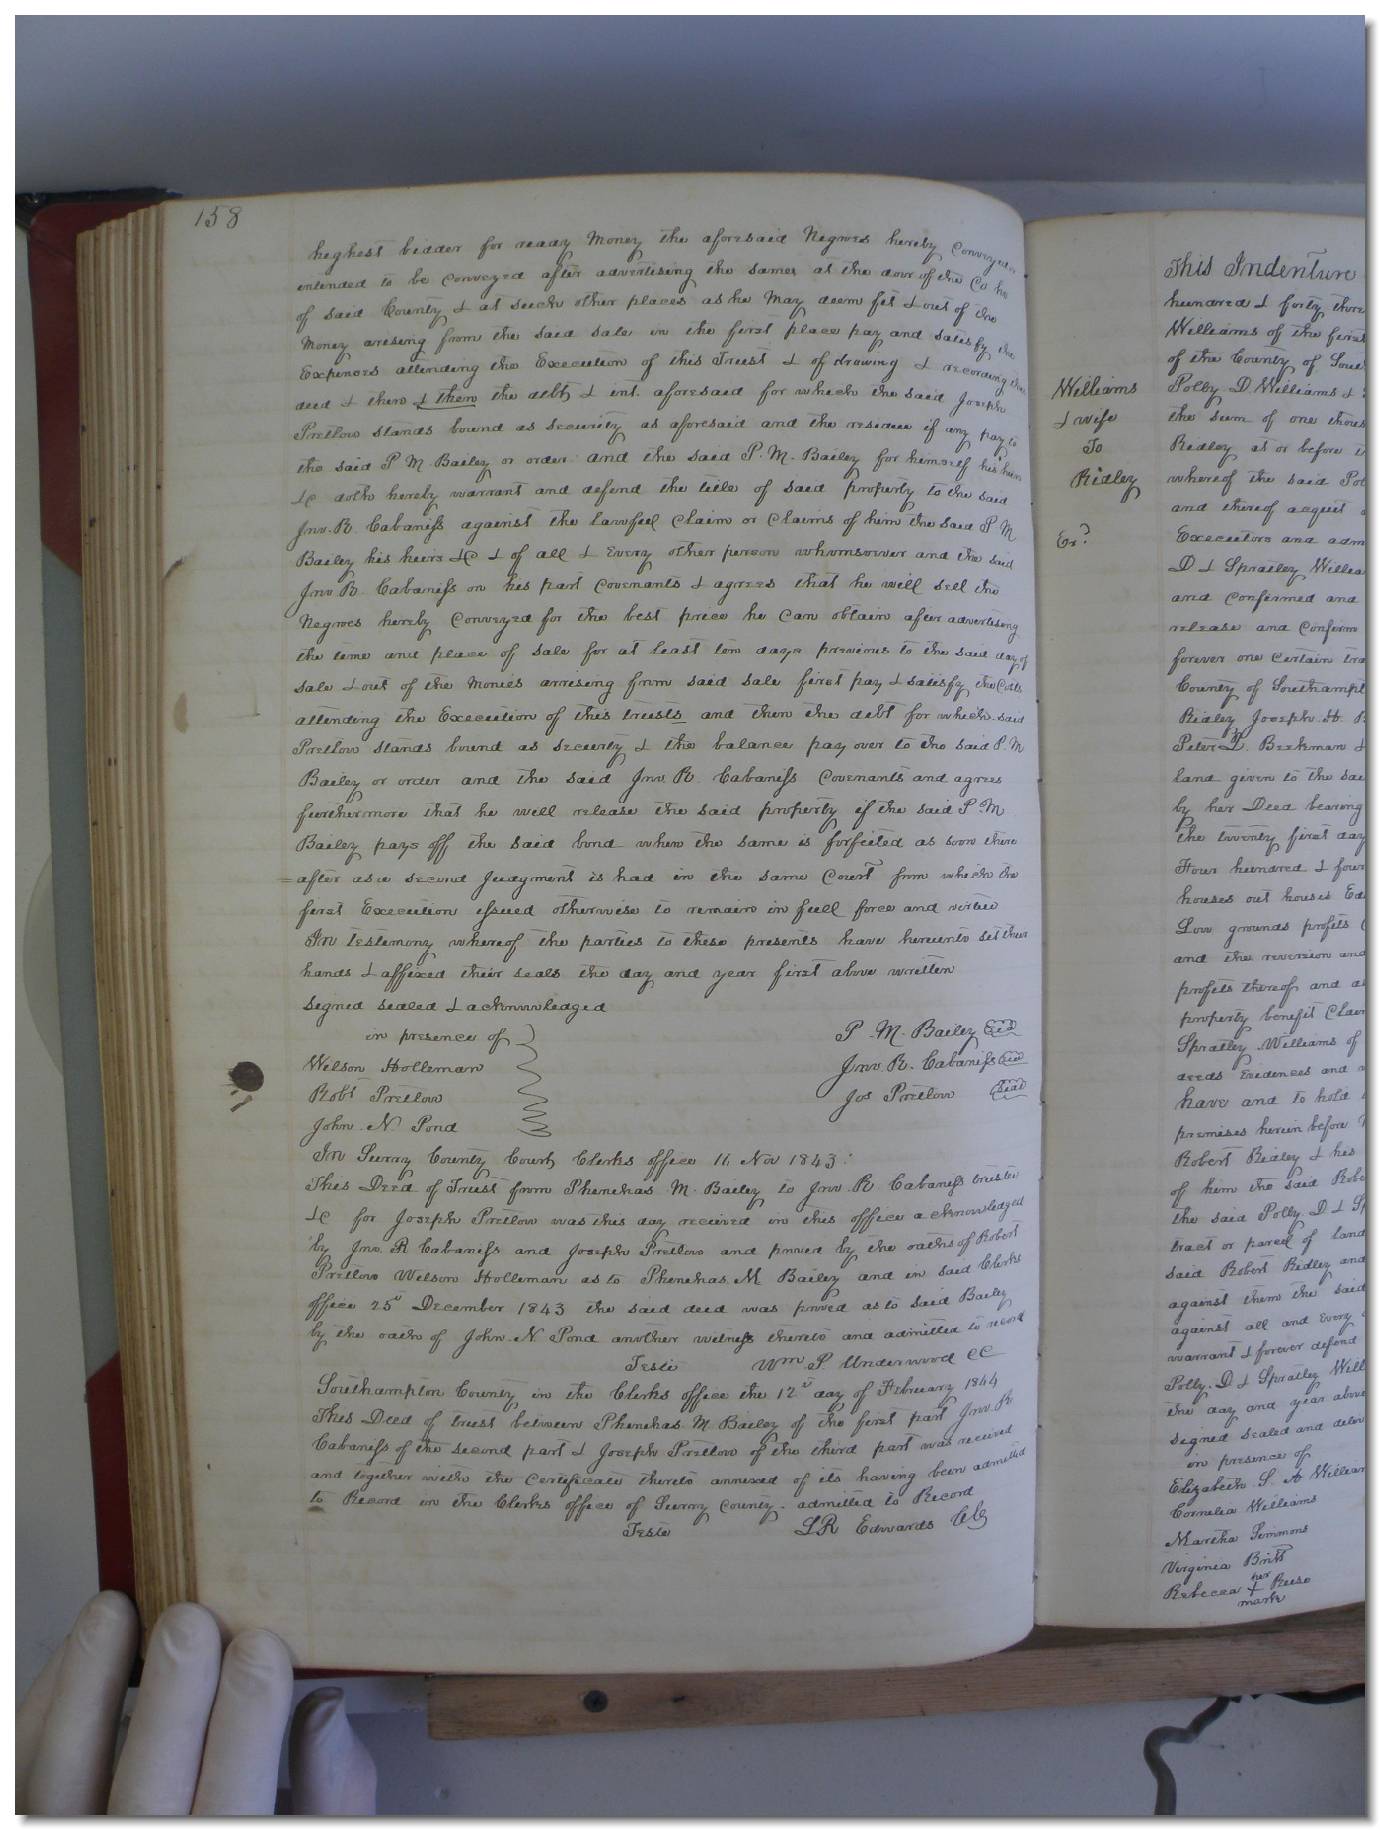 158
highest bidder for ready Money the aforesaid Negroes hereby Conveyed or
intended to be Conveyed after advertising the same at the door of the Co ho
of said County & at such other places as he May deem fit & out of the
Money arising from the said sale in the first place pay and satisfy the
Expences attending the Execution of this Trust & of drawing & recording this
deed & then & then the debt & int. aforesaid for which the said Joseph
Pretlow stands bound as security as aforesaid and the residue if any pay to
the said P M. Bailey or order and the said P. M. Bailey for himself his heirs
&c doth hereby warrant and defend the title of said property to the said
Jno. R. Cabaniss against the lawful Claim or Claims of him the said P M
Bailey his heirs &c & of all & Every other person whomsoever and the said
Jno R. Cabaniss on his part Covenants & agrees that he will sell the
Negroes hereby Conveyed for the best price he Can obtain after advertising
the time and place of sale for at least ten days previous to the said day of
sale & out of the Monies arresing from said sale first pay & satisfy the Costs
attending the Execution of this trusts and then the debt for which said
Pretlow stands bound as security & the balance pay over to the said P. M
Bailey or order and the said Jno. R. Cabaniss Covenants and agrees
furthermore that he will release the said property if the said P. M
Bailey pays off the said bond when the same is forfeited as soon there
=after as a second Judgment is had in the same Court from which the
first Execution issued otherwise to remain in full force and virtue
In Testimony whereof the parties to these presents have hereunto set their
hands & affixed their seals the day and year first above written
signed sealed & acknowledged
in presence of
P. M. Bailey Seal
Wilson Holleman
Jno. R. Cabaniss Seal
Robt Pretlow
Jos Pretlow Seal
John. N. Pond
In Surry County Court Clerks office 11 Nov 1843.
This Deed of Trust from Phinehas M. Bailey to Jno. R. Cabaniss trustee
&c for Joseph Pretlow was this day received in this office acknowledged
by Jno. R Cabaniss and Joseph Pretlow and proved by the oaths of Robert
Pretlow Wilson Holleman as to Phinehas M Bailey and in said Clerks
office 25th December 1843 the said deed was proved as to said Bailey
by the oath of John. N Pond another witness thereto and admitted to record
Teste Wm. P. Underwood CC
Southampton County in the Clerks office the 12th day of February 1844
This Deed of trust between Phinehas M. Bailey of the first part Jno. R
Cabaniss of the second part & Joseph Pretlow of the third part was received
and together with the Certificate thereto annexed of its having been admitted
to Record in the Clerks office of Surry County. admitted to Record
Teste LR Edwards ClC
Williams
& wife
To
Ridley
Ex?
This Indenture
hundred & forty three
Williams of the first
of the County of Sout
Polly D. Williams &
the sum of one thous
Ridley at or before
whereof the said Pol
and thereof acquit
Executors and adm
D & Spratley Willia
and Confirmed and
release and Confirm
forever one Certain tra
County of Southampt
Ridley Joseph. H.
Peter B. Beekman &
land given to the sai
by her Deed bearing
the twenty first day
Four hundred & four
houses out houses Ed
Low grounds profits
and the reversion and
profits thereof and a
property benefit Clai
Spratley Williams of
deeds Evidences and
have and to hold
premises herein before
Robert Ridley & his
of him the said Robe
the said Polly. D & Sp
tract or parcel of land
said Robert Ridley and
against them the said
against all and Every
warrant & forever defend
Polly. D & Spratley Will
the day and year above
signed sealed and deliv
in presence of
Elizabeth S. A Williar
Cornelia Williams
Martha Simmons
Virginia Britt
Rebecca + Reese
her
mark